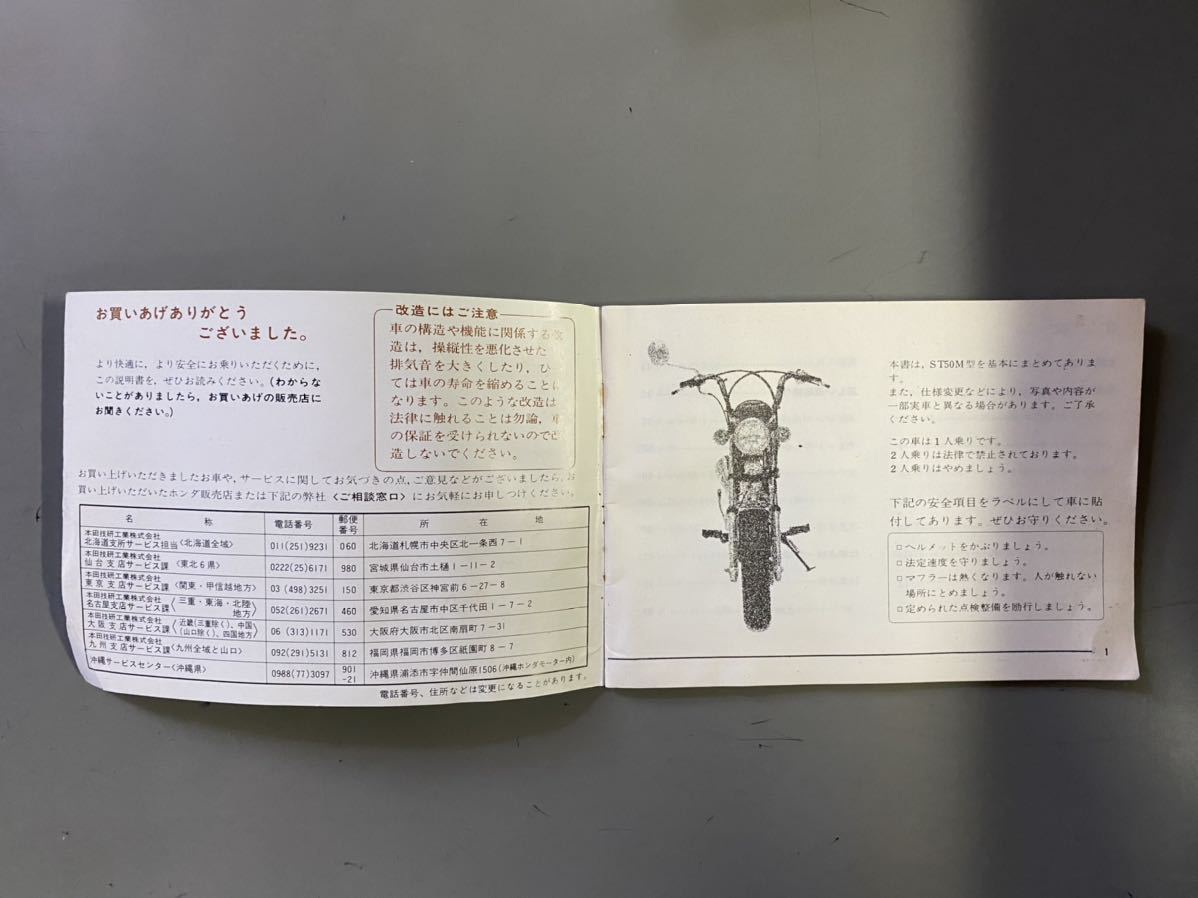 お買いあげありがとう
ございました。
より快適に，より安全にお乗りいただくために，
この説明書を，ぜひお読みください。(わからな
いことがありましたら，お買いあげの販売店に
お聞きください。)
改造にはご注意
車の構造や機能に関係する改
造は，操縦性を悪化させた
排気音を大きくしたり，ひ
ては車の寿命を縮めることに
なります。このような改造は
法律に触れることは勿論，車
の保証を受けられないので改
造しないでください。
お買い上げいただきましたお車や，サービスに関してお気づきの点，ご意見などがございましたら，お
買い上げいただいたホンダ販売店または下記の弊社〈ご相談窓口〉にお気軽にお申しつけください。
名称 電話番号 郵便番号 所在地
本田技研工業株式会社
北海道支所サービス担当〈北海道全域〉 011(251)9231 060 北海道札幌市中央区北一条西7−1
本田技研工業株式会社
仙台支店サービス課〈東北6県〉 0222(25)6171 980 宮城県仙台市土樋1−11−2
本田技研工業株式会社
東京支店サービス課〈関東・甲信越地方〉 03(498)3251 150 東京都渋谷区神宮前6−27−8
本田技研工業株式会社
名古屋支店サービス課〈三重・東海・北陸地方〉 052(261)2671 460 愛知県名古屋市中区千代田1−7−2
本田技研工業株式会社
大阪支店サービス課〈近畿(三重除く)、中国(山口除く)、四国地方〉 06(313)1171 530 大阪府大阪市北区南扇町7−31
本田技研工業株式会社
九州支店サービス課〈九州全域と山口〉 092(291)5131 812 福岡県福岡市博多区祇園町8−7
沖縄サービスセンター〈沖縄県〉 0988(77)3097 901-21 沖縄県浦添市字仲間仙原1506(沖縄ホンダモーター内)
電話番号、住所などは変更になることがあります。
本書は，ST50M型を基本にまとめてありま
す。
また，仕様変更などにより，写真や内容が
一部実車と異なる場合があります。ご了承
ください。
この車は1人乗りです。
2人乗りは法律で禁止されております。
2人乗りはやめましょう。
下記の安全項目をラベルにして車に貼
付してあります。ぜひお守りください。
□ヘルメットをかぶりましょう。
□法定速度を守りましょう。
□マフラーは熱くなります。人が触れない
場所にとめましょう。
□定められた点検整備を励行しましょう。
1